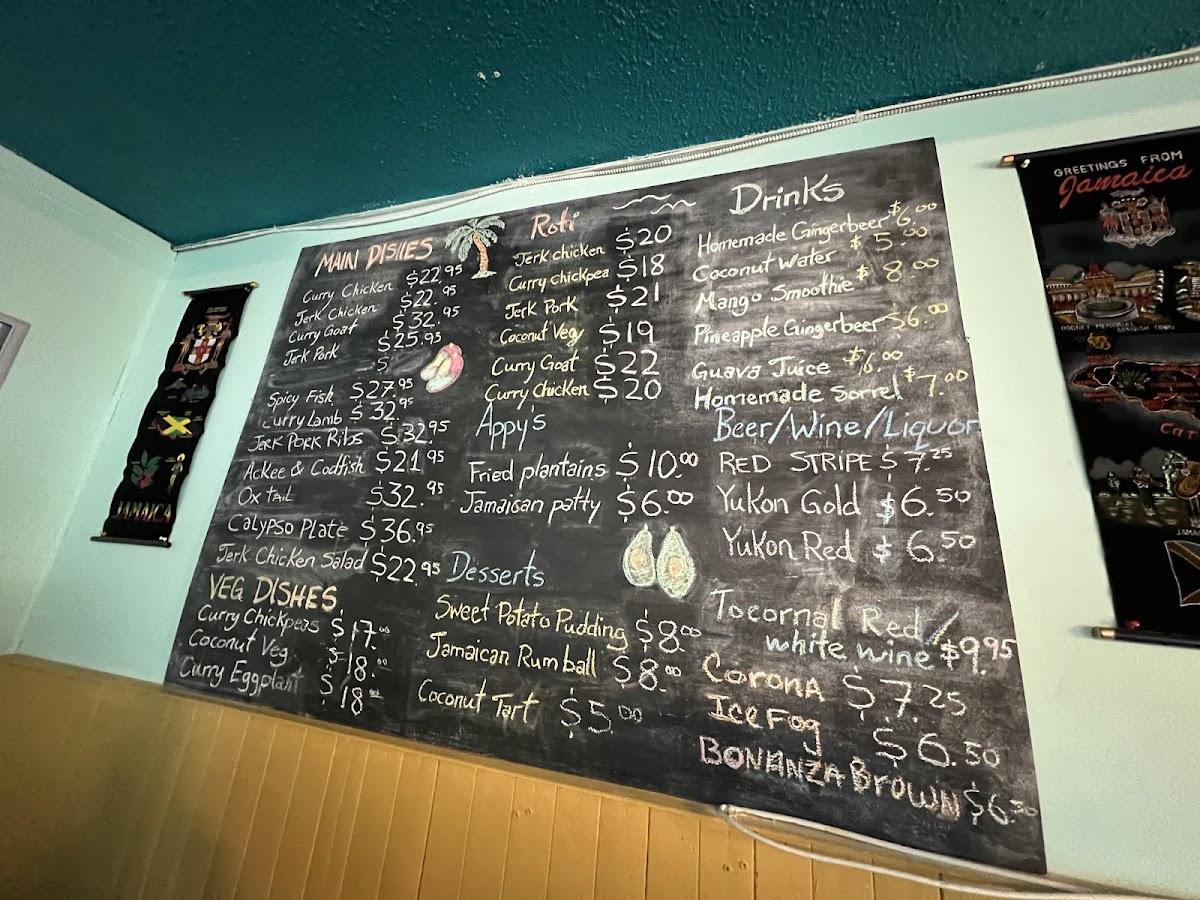 MAIN DISHES
Curry Chicken $22.95
Jerk Chicken $22.95
Curry Goat $32.95
Jerk Pork $25.95
$
Spicy Fish $27.95
Curry Lamb $32.95
Jerk Pork Ribs $32.95
Ackee & Codfish $21.95
Ox tail $32.95
Calypso Plate $36.95
Jerk Chicken Salad $22.95
VEG DISHES
Curry Chickpeas $17.00
Coconut Veg $18.00
Curry Eggplant $18.00
Roti
Jerk chicken $20
Curry chickpea $18
Jerk Pork $21
Coconut Vegy $19
Curry Goat $22
Curry Chicken $20
Appy's
Fried plantains $10.00
Jamaican patty $6.00
Desserts
Sweet Potato Pudding $8.00
Jamaican Rum ball $8.00
Coconut Tart $5.00
Drinks
Homemade Gingerbeer $6.00
Coconut Water $5.50
Mango Smoothie $8.00
Pineapple Gingerbeer $6.00
Guava Juice $6.00
Homemade Sorrel $7.00
Beer/Wine/Liquor
RED STRIPE $7.25
Yukon Gold $6.50
Yukon Red $6.50
Tocornal Red/
white wine $9.95
Corona $7.25
Ice Fog $6.50
BONANZA BROWN $6.50
JAMAICA
GREETINGS FROM
Jamaica
RODNEY MEMORIAL SPANISH TOWN